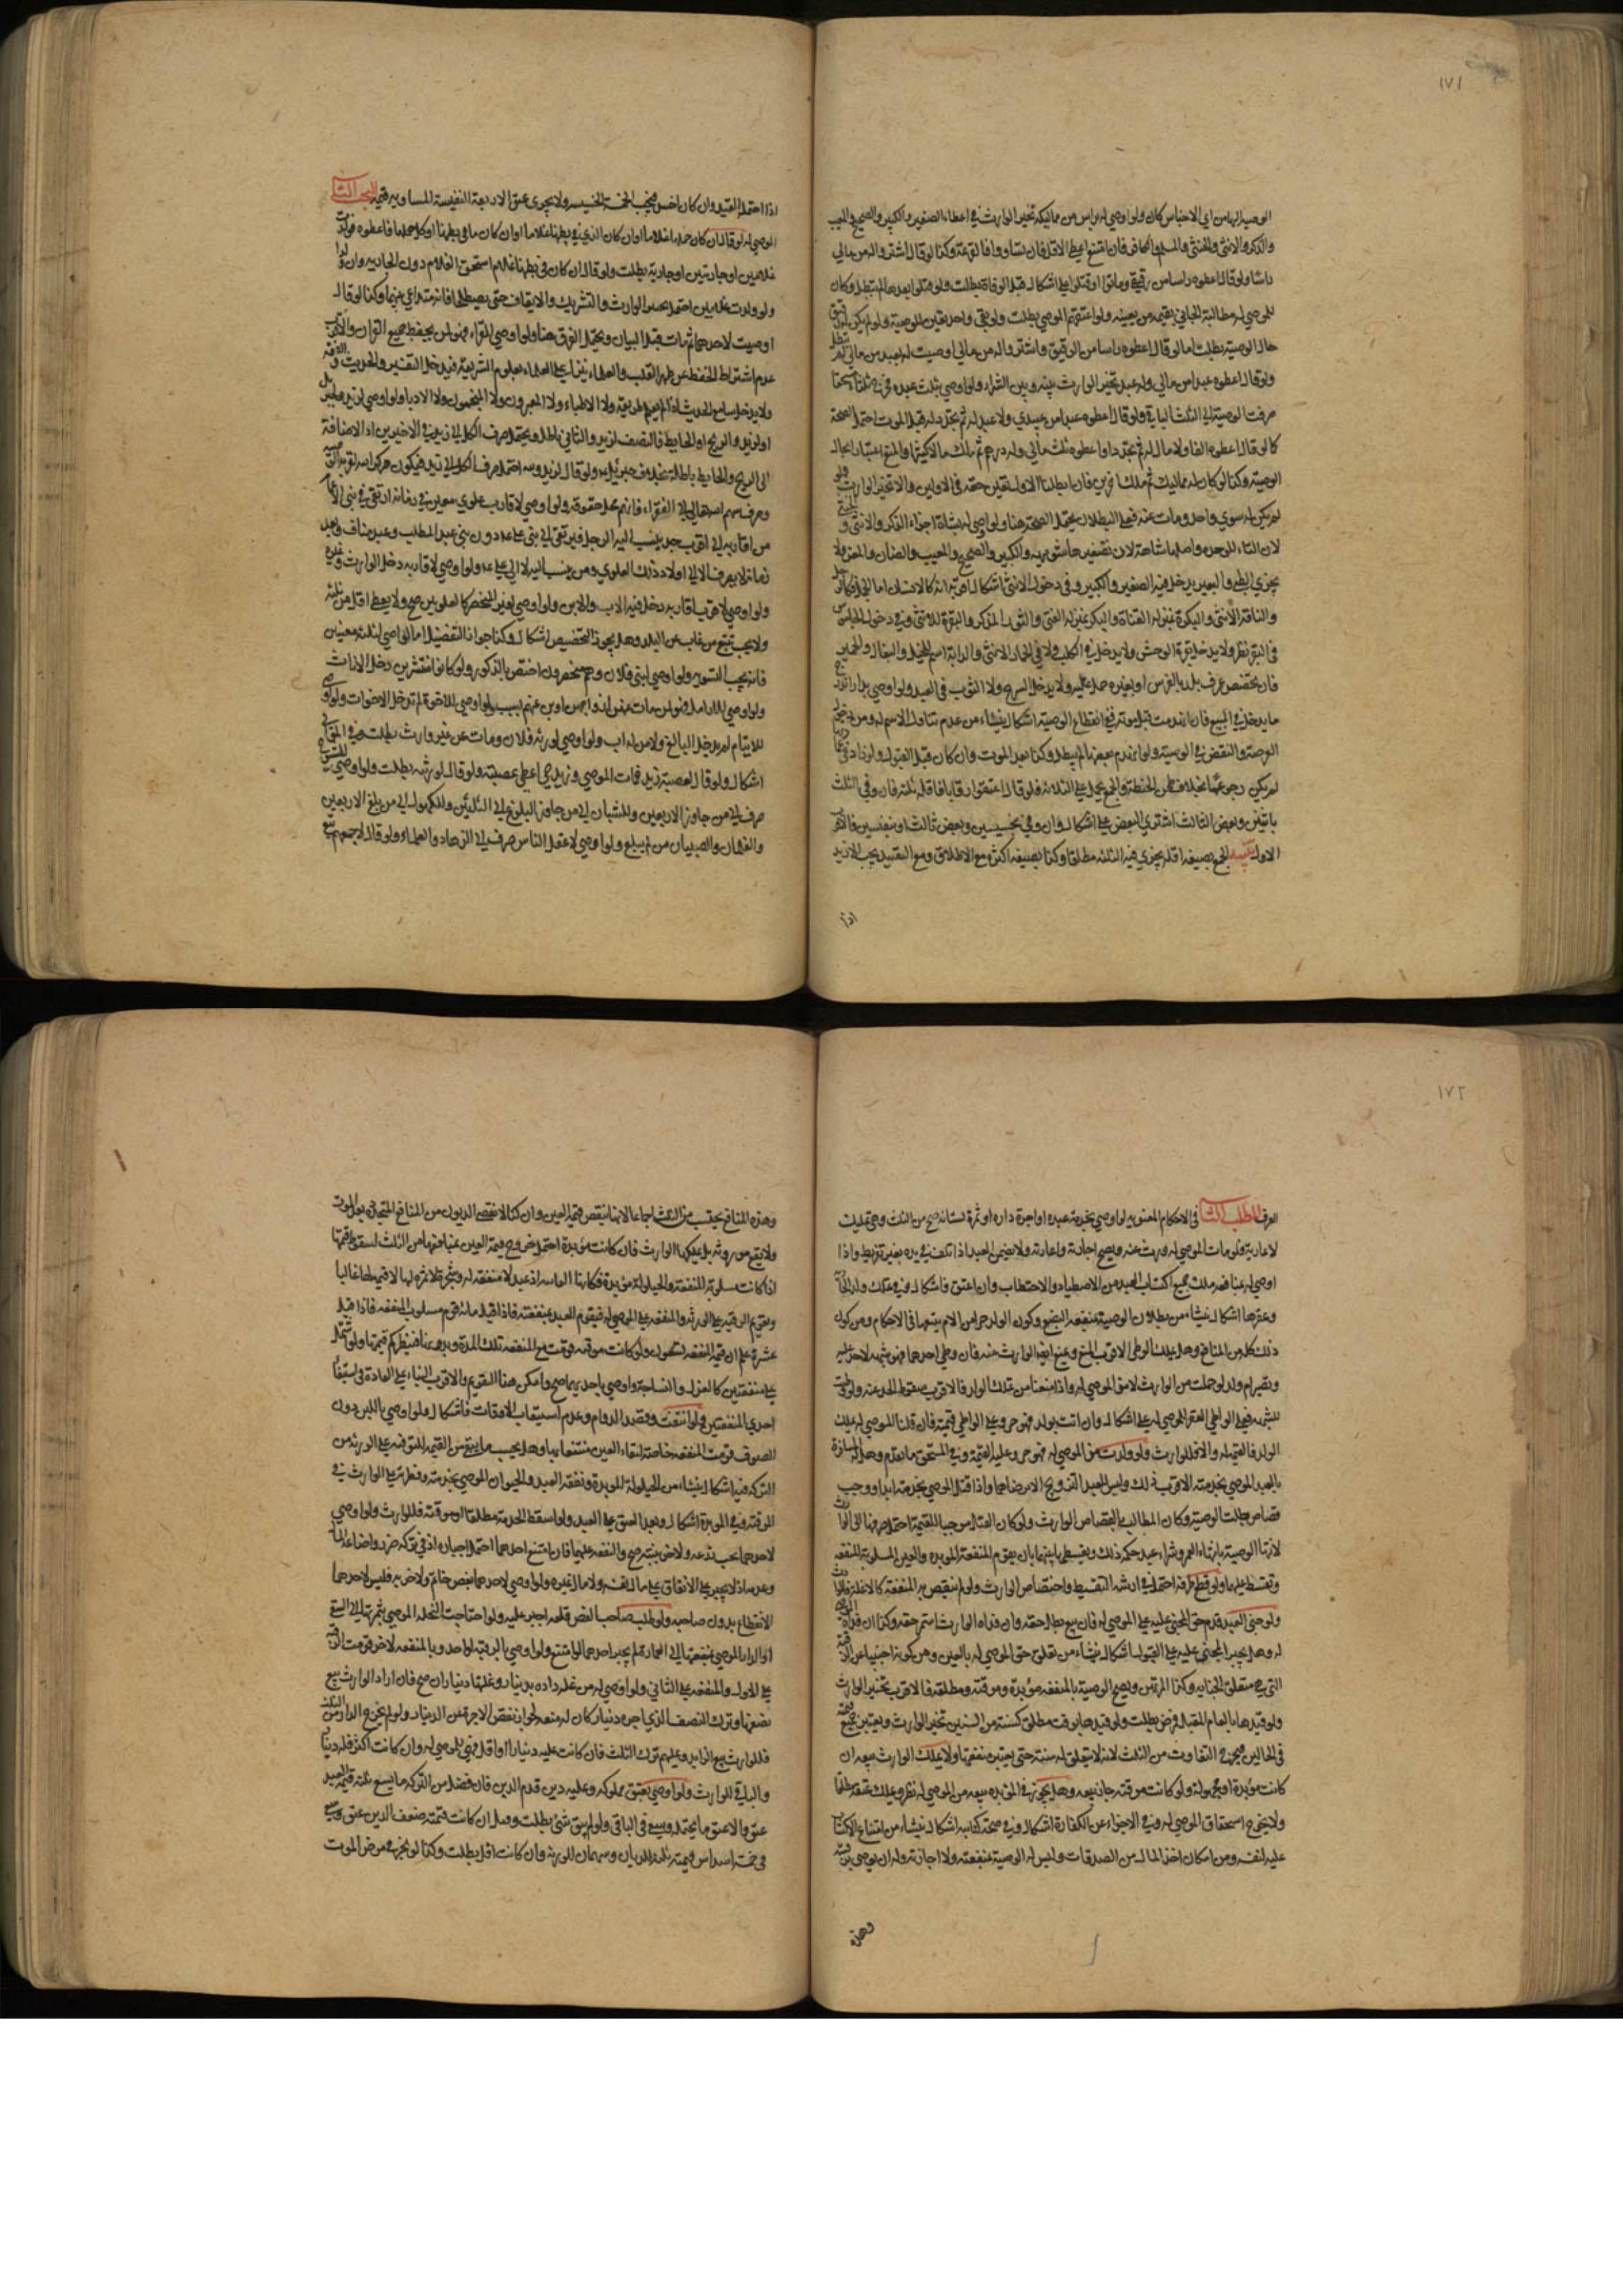 ١٧١
الوصية لهما من اي الاجناس كان ولو اوصي له براس من مماليكه تخير الوارث في اعطاء الصغير والكبير والصحيح والمعيب
والذكر والانثى والخنثى والمسلم والكافر فان امتنع اعطي الاقل فان تساووا فالقرعة وكذا لو قال اشتروا له من مالي
راسا ولو قال اعطوه راسا من رقيقي وماتوا او قتلوا على اشكال قبل الوفاة بطلت ولو قتلوا بعدها لم تبطل وكان
للموصى له مطالبة الجاني بقيمة من يعينه ولو اعتقهم الموصي بطلت ولو بقي واحد تعين للوصية ولو لم يكن له رقيق
حال الوصية بطلت اما لو قال اعطوه راسا من الرقيق واشتروا له من مالي او اوصيت له بعبد من مالي لم تبطل
ولو قال اعطوه عبدا من مالي وله عبد تخير الوارث بينه وبين الشراء ولو اوصي بثلث عبده فخرج ثلثاه مستحقا
صرفت الوصية الى الثلث الباقي ولو قال اعطوه عبدا من عبيدي ولا عبد له ثم تجدد له قبل الموت احتمل الصحة
كما لو قال اعطوه الفا ولا مال له ثم تجدد او اعطوه ثلث مالي وله درهم ثم ملك مالا كثيرا والمنع اعتبارا بحال
الوصية وكذا لو كان له مماليك ثم ملك اخرين فان ابطلنا الاول تعين حقه في الاولين والا تخير الوارث ولو
لم يكن له سوى واحد ومات عنه فعلى البطلان يحتمل الصحة هنا ولو اوصى له بشاة اجزاه الذكر والانثى
لان التاء للوحدة واصلها شاهة لان تصغيرها شويهة والكبير والصحيح والمعيب والضان والمعز ولا
يجزي الظبي والبعير يدخل فيه الصغير والكبير وفي دخول الانثى اشكال اقربه انه كالانسان اما الجمل فكالرجل
والناقة الانثى والبكرة بمنزلة الفتاة والبكر بمنزلة الفتى والثور المذكر والبقرة للانثى وفي دخول الجاموس
في البقر نظر ولا يدخل بقرة الوحش ولا يدخل في الكلب ولا في الحمار الانثى والدابة اسم للخيل والبغال والحمير
فان تخصص عرف بلد بالفرس او بغيره حمل عليه ولا يدخل السرج ولا الثوب في العبد ولو اوصي بدار اندرج
ما يدخل في البيع فان انهدمت قبل موته ففي انقطاع الوصية اشكال ينشاء من عدم تناول الاسم له ومن دخول
العرصة والنقض في الوصية ولو انهدم بعضها لم تبطل وكذا بعد الموت وان كان قبل القبول ولو زاد فيها
لم يكن رجوعا بخلاف طحن الحنطة والجمع يحمل على الثلاثة فلو قال اعتقوا رقابا فاقله ثلثة فان وفى الثلث
باثنين وبعض الثالث اشتري البعض على اشكال وان وفى بخسيسين وبعض ثالث او بنفيسين فالاقرب
الاول تنبيه الجمع بصيغة اقله يجزي فيه الثلثة مطلقا وكذا بصيغة اكثره مع الاطلاق ومع التقييد يجب الازيد
اذا
اذا احتمله القيد وان كان اخس فيجب الخمسة الخسيسة ولا يجزي عتق الاربعة النفيسة المساوية قيمة البحث الثاني
الموصى له لو قال ان كان حملها غلاما او ان كان الذي في بطنها غلاما او ان كان ما في بطنها او كل حملها فاعطوه فولدت
غلامين او جاريتين او جارية بطلت ولو قال ان كان في بطنها غلام استحق الغلام دون الجارية وان ولدا
ولو ولدت غلامين احتمل تخيير الوارث والتشريك والايقاف حتى يصطلحا فانه متداعى بينهما وكذا لو قال
اوصيت لاحدهما ثم مات قبل البيان ويحتمل الفرق هنا ولو اوصي للقراء فهو لمن يحفظ جميع القران والاقرب
عدم اشتراط الحفظ عن ظهر القلب والعلماء ينزل على العلماء بعلوم الشريعة فيدخل التفسير والحديث والفقه
ولا يدخل سامع الحديث اذا لم يعلم طريقه ولا الاطباء ولا المعبرون ولا المنجمون ولا الادبا ولو اوصي لزيد وجبرئيل
او لزيد والريح او الحايط فالنصف لزيد والثاني باطل ويحتمل صرف الكل الى زيد في الاخيرين اذ الاضافة
الى الريح والحايط باطلة بخلاف جبرئيل ولو قال لزيد ولله احتمل صرف الكل الى زيد فيكون ذكر الله لقربه
وصرف سهم الله تعالى الى الفقراء فانهم محل حقوقه ولو اوصي لاقارب علوي معين في زمانه ارتقى في بني الاعمام
من اقاربه الى اقرب جد ينسب اليه الرجل فيرتقي الى بني علي دون بني عبد المطلب وعبد مناف وبعد
زمانه لا يصرف الا الى اولاد ذلك العلوي ومن ينسب اليه لا الى علي ولو اوصي لاقاربه دخل الوارث وغيره
ولو اوصي لاقرب اقاربه دخل فيه الاب والابن ولو اوصي لغير المنحصر كالعلويين صح ولا يعطى اقل من ثلثة
ولا يجب تتبع من غاب عن البلد وهل يجوز التخصيص اشكال وكذا جواز التفضيل اما لو اوصي لثلثة معينين
فانه يجب التسوية ولو اوصي لبني فلان وهم منحصرون اختص بالذكور ولو كانوا منتشرين دخل الاناث
ولو اوصي للارامل فهو لمن مات عنهن ازواجهن او بن عنهم بسبب ولو اوصي للاخوة لم تدخل الاخوات ولو اوصى
للايتام لم يدخل البالغ ولا من له اب ولو اوصي لورثة فلان ومات عن غير وارث بطلت
اشكال ولو قال لعصبة زيد فمات الموصي وزيد حي اعطي عصبته ولو قال لورثته بطلت ولو اوصي للشيوخ
صرف الى من جاوز الاربعين وللشبان الى من جاوز البلوغ الى الثلثين وللكهول الى من بلغ الاربعين
والغلمان والصبيان من لم يبلغ ولو اوصي لاعقل الناس صرف الى الزهاد والعلماء ولو قال لاجمعهم
١٧٢
العرف المطلب الثالث في الاحكام المعنوية لو اوصي بخدمة عبده او اجرة داره او ثمرة بستانه صح من الثلث وهي تمليك
لا عارية فلو مات الموصى له ورث عنه ويصح اجارته واعارته ولا يضمن العبد اذا تلف في يده بغير تفريط واذا
اوصي له بمنافعه ملك جميع اكتساب العبد من الاصطياد والاحتطاب وان اعتق فاشكال وفي تملك ولد الجارية
وعقرها اشكال ينشاء من بطلان الوصية بمنفعة البضع وكون الولد جزءا من الام يتبعها في الاحكام ومن كون
ذلك كله من المنافع وهل يملك الوطي الاقرب المنع ويمنع ايضا الوارث منه فان وطي احدهما فهو شبهة لا حد عليه
وتصير ام ولد لو حملت من الوارث لا من الموصى له واذا منعنا من تملك الولد فالاقرب سقوط الحد عنه ولو وطئت
للشبهة فعلى الواطي العقر للموصى له على اشكال وان اتت بولد فهو حر وعلى الواطي قيمته فان قلنا للموصى له يملك
الولد فالقيمة له والا فللوارث ولو ولدت من الموصى له فهو حر وعليه القيمة وفي المستحق ما تقدم وهل له المسافرة
بالعبد الموصى بخدمته الاقرب ذلك وليس للعبد التزويج الا برضاهما واذا قتل الموصى بخدمته ابدا ووجب
قصاص بطلت الوصية وكان المطالب بالقصاص الوارث ولو كان القتل موجبا للقيمة احتمل صرفها الى الوارث
لانتهاء الوصية بانتهاء العمر وشراء عبد حكمه ذلك وتقسيطها بينهما بان يقوم المنفعة المؤبدة والعين المسلوبة المنفعة
وتقسط عليهما ولو قطع طرفه احتمل في ارشه التقسيط واختصاص الوارث ولو لم تنقص به المنفعة كالانملة فللوارث
ولو جنى العبد قدم حق المجني عليه على الموصى له فان بيع بطل حقه وان فداه الوارث استمر حقه وكذا ان فداه
له وهل يجبر المجني عليه على القبول اشكال ينشاء من تعلق حق الموصى له بالعين ومن كونه اجنبيا عن الرقبة
التي هي متعلق الجناية وكذا المرتهن ويصح الوصية بالمنفعة مؤبدة وموقتة ومطلقة فالاقرب تخيير الوارث
ولو قيدها بالعام المقبل فمرض بطلت ولو قيدها بوقت مطلق كسنة من السنين تخير الوارث ويعتبر جميع قيمته
في الحالين فيخرج التفاوت من الثلث لانه لا يتعلق له سنة حتى يعتبر نفعها ولا يملك الوارث بيعه ان
كانت مؤبدة او مجهولة ولو كانت موقتة جاز بيعه وهل يجوز في المؤبدة بيعه من الموصى له نظر ويملك عتقه مطلقا
ولا يخرج استحقاق الموصى له وفي الاجزاء عن الكفارة اشكال وفي صحة كتابته اشكال ينشاء من امتناع الاكتساب
عليه لنفسه ومن امكان اخذ المال من الصدقات وليس له الوصية بمنفعته ولا اجارته وله ان يوصي برقبته
وهذه
وهذه المنافع يحتسب من الثلث اجماعا لانها تنقص قيمة العين وان كنا لا نقضي الديون من المنافع المتجددة بعد الموت
ولا يقع موروثة بل يملكها الوارث فان كانت مؤبدة احتمل خروج قيمة العين بمنافعها من الثلث لسقوط قيمتها
اذا كانت مسلوبة المنفعة والحيلولة مؤبدة فكانها الفاسد اذ عبد لا منفعة له وشجرة لا ثمرة لها لا قيمة لها غالبا
وتقويم الرقبة على الورثة والمنفعة على الموصى له فيقوم العبد بمنفعته فاذا قيل مائة قوم مسلوب المنفعة فاذا قيل
عشرة علم ان قيمة المنفعة تسعون ولو كانت موقتة قومت مع المنفعة تلك المدة وبدونها فينظر كم قيمتها ولو اشتمل
على منفعتين كالغزل والنساجة واوصي باحديهما صح وامكن هنا التقويم والاقرب البناء على العادة في استيفاء
احدى المنفعتين ولو انتفت وقصد الدوام وعدم استيعاب الاوقات فاشكال ولو اوصي باللبن دون
الصوف قومت المنفعة خاصة لبقاء العين منتفعا بها وهل يحتسب ما نقص من القيمة الموقتة على الورثة من
التركة فيه اشكال ينشاء من الحيلولة المؤبدة ونفقة العبد والحيوان الموصى بخدمته وفعل ترع على الوارث في
الموقتة وفي المؤبدة اشكال وبعد العتق على العبد ولو اسقط الخدمة مطلقا او موقتة فللوارث ولو اوصي
لاحدهما بحب زرعه ولاخر بتبنه صح والنفقة عليهما فان امتنع احدهما احتمل اجباره اذ في تركه ضرر واضاعة المال
وعدمه اذ لا يجبر على الانفاق على مال نفسه ولا مال غيره ولو اوصي لاحدهما بفص خاتم ولاخر به فليس لاحدهما
الانتفاع بدون صاحبه ولو طلب صاحب الفص قلعه اجبر عليه ولو احتاجت النخلة الموصى بثمرتها الى السقي
او الدار الموصى بمنفعتها الى العمارة لم يجبر احدهما لو امتنع ولو اوصي بالرقبة لواحد وبالمنفعة لاخر قومت الرقبة
على الاول والمنفعة على الثاني ولو اوصي له من غلة داره بدينار وغلتها ديناران صح فان اراد الوارث بيع
نصفها وترك النصف الذي اجره دينار كان له منعه لجواز نقص الاجر عن الدينار ولو لم يخرج الدار من الثلث
فللوارث بيع الزايد وعليهم ترك الثلث فان كانت غلته دينارا او اقل فهي للموصى له وان كانت اكثر فله دينار
والباقي للوارث ولو اوصي بعتق مملوكه وعليه دين قدم الدين فان فضل من التركة ما يسع ثلثه قيمة العبد
عتق والا عتق ما يحتمله ويسعى في الباقي ولو لم يبق شئ بطلت وقيل ان كانت قيمته ضعف الدين عتق وسعى
في خمسة اسداس قيمته ثلثة للديان وسهمان للورثة وان كانت اقل بطلت وكذا لو نجز في مرض الموت